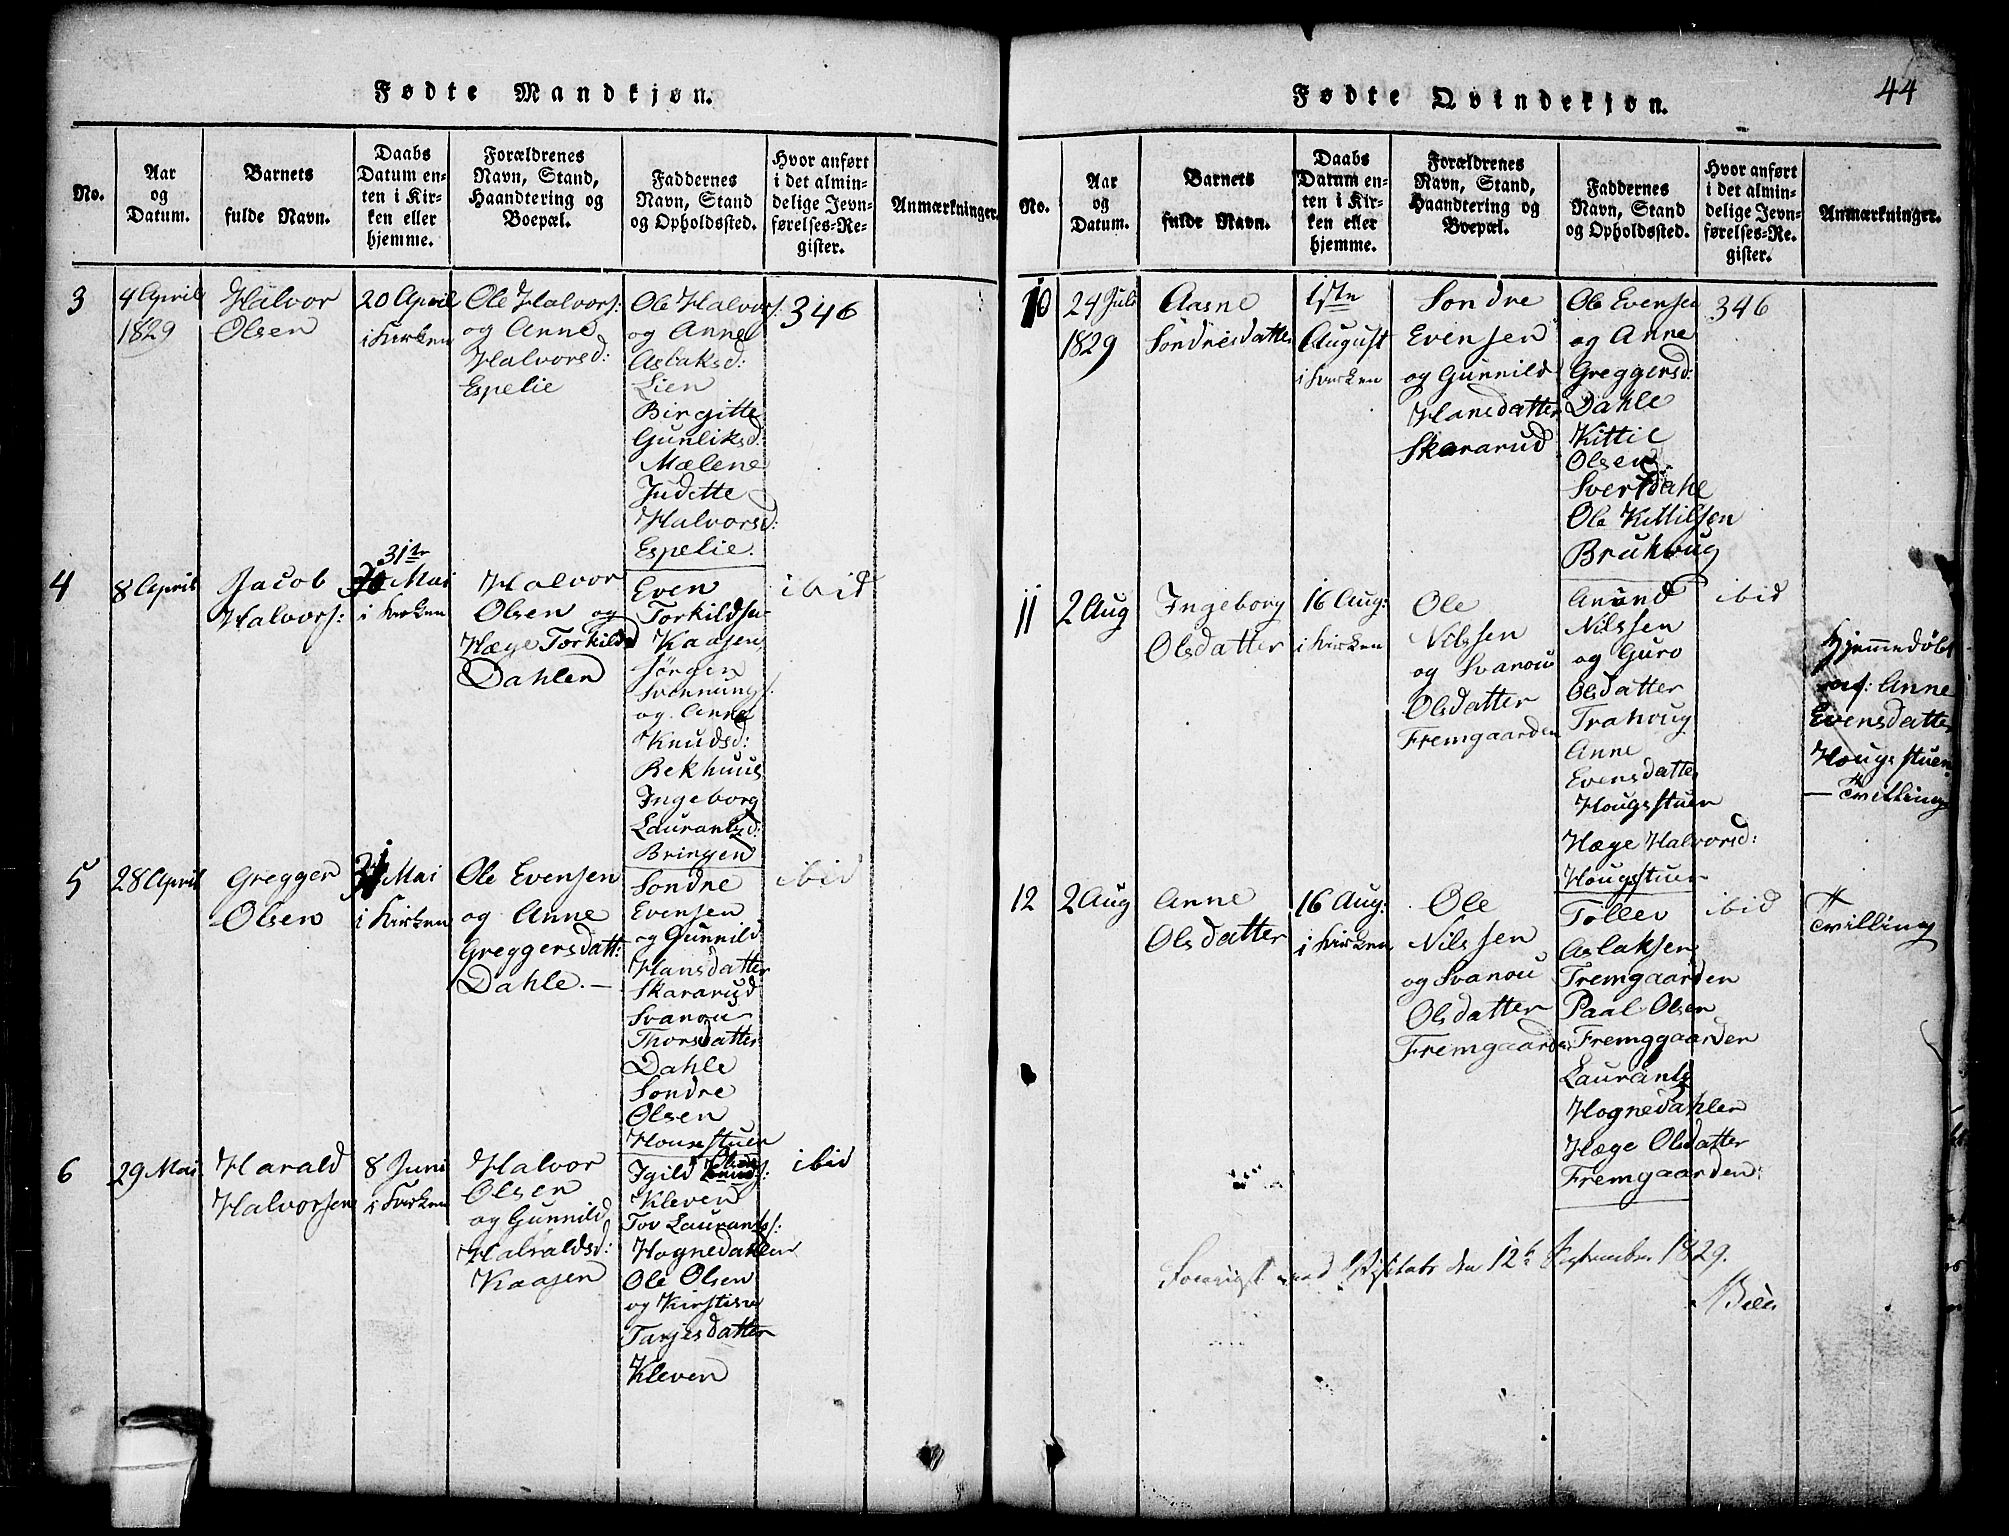 Fødte Mandkjøn.
No.
Aar
og
Datum.
Barnets
fulde Navn.
Daabs
Datum en-
ten i Kir-
ken eller
hjemme.
Forældrenes
Navn, Stand,
Haandtering og
Boepæl.
Faddernes
Navn, Stand
og Opholdssted.
Hvor anført
i det almin-
delige Jevn-
førelses-Re-
gister.
Anmærkninger.
3
4 April
1829
Halvor
Olsen
20 April
i Kirken
Ole Halvors:
og Anne
Halvorsd:
Espelie
Ole Halvors:
og Anne
Aslaksd:
Lien
Birgitte
Gunliksd:
Mælene
Judette
Halvorsd:
Espelie.
346
4
8 April
Jacob
Halvors:
31te
Mai
i Kirken
Halvor
Olsen og
Hæge Torkilds
Dahlen
Even
Torkilds
Kaasen
Jørgen
Svennungs:
og Anne
Knudsd:
Bekhuus
Ingeborg
Laurantzd:
Bringen
ibid
5
28 April
Gregger
Olsen
31 Mai
i Kirken
Ole Evensen
og Anne
Greggersdatt:
Dahle. —
Sondre
Evensen
og Gunnild
Hansdatter
Skararud
Svanou
Thorsdatter
Dahle
Sondre
Olsen
ibid
6
29 Mai
Harald
Halvorsen
8 Juni
i Kirken
Halvor
Olsen
og Gunnild
Haraldsd:
Kaasen
Igild
Kleven
Tov Laurants:
Hognedahlen
Ole Olsen
og Kirstine
Tarjesdatter
Kleven
ibid
Fødte Qvindekjøn.
44
No.
Aar
og
Datum.
Barnets
fulde Navn.
Daabs
Datum en-
ten i Kir-
ken eller
hjemme.
Forældrenes
Navn, Stand,
Haandtering og
Boepæl.
Faddernes
Navn, Stand
og Opholdssted.
Hvor anført
i det almin-
delige Jevn-
førelses-Re-
gister.
Anmærkninger.
10
24 Juli
1829
Aasne
Sondresdatter
1ste
August
i Kirken
Sondre
Evensen
og Gunnild
Hansdatter
Skararud
Ole Evensen
og Anne
Greggersd:
Dahle
Kittil
Olsen
Svertdahl
Ole Kittilsen
Bruhoug
346
11
2 Aug
Ingeborg
Olsdatter
16 Aug:
i Kirken
Ole
Nilssen
og Svanou
Olsdatter
Fremgaarden
Anund
Nilssen
og Guro
Olsdatter
Trahoug
Anne
Evensdatter
Hougsstuen
Hæge Halvorsd:
Hougsstuen
ibid
Hjemmedøbt
af: Anne
Evensdatter
Hougsstuen
— Tvilling
12
2 Aug
Anne
Olsdatter
16 Aug:
i Kirken
Ole
Nilssen
og Svanou
Olsdatter
Fremgaarden
Tollev
Aslaksen
Fremgaarden
Paal Olsen
Fremggaarden
Laurants
Hognedahlen
Hæge Olsdatter
Fremgaarden
ibid
Tvilling
Foreviist ved Visitats den 12te September 1829.